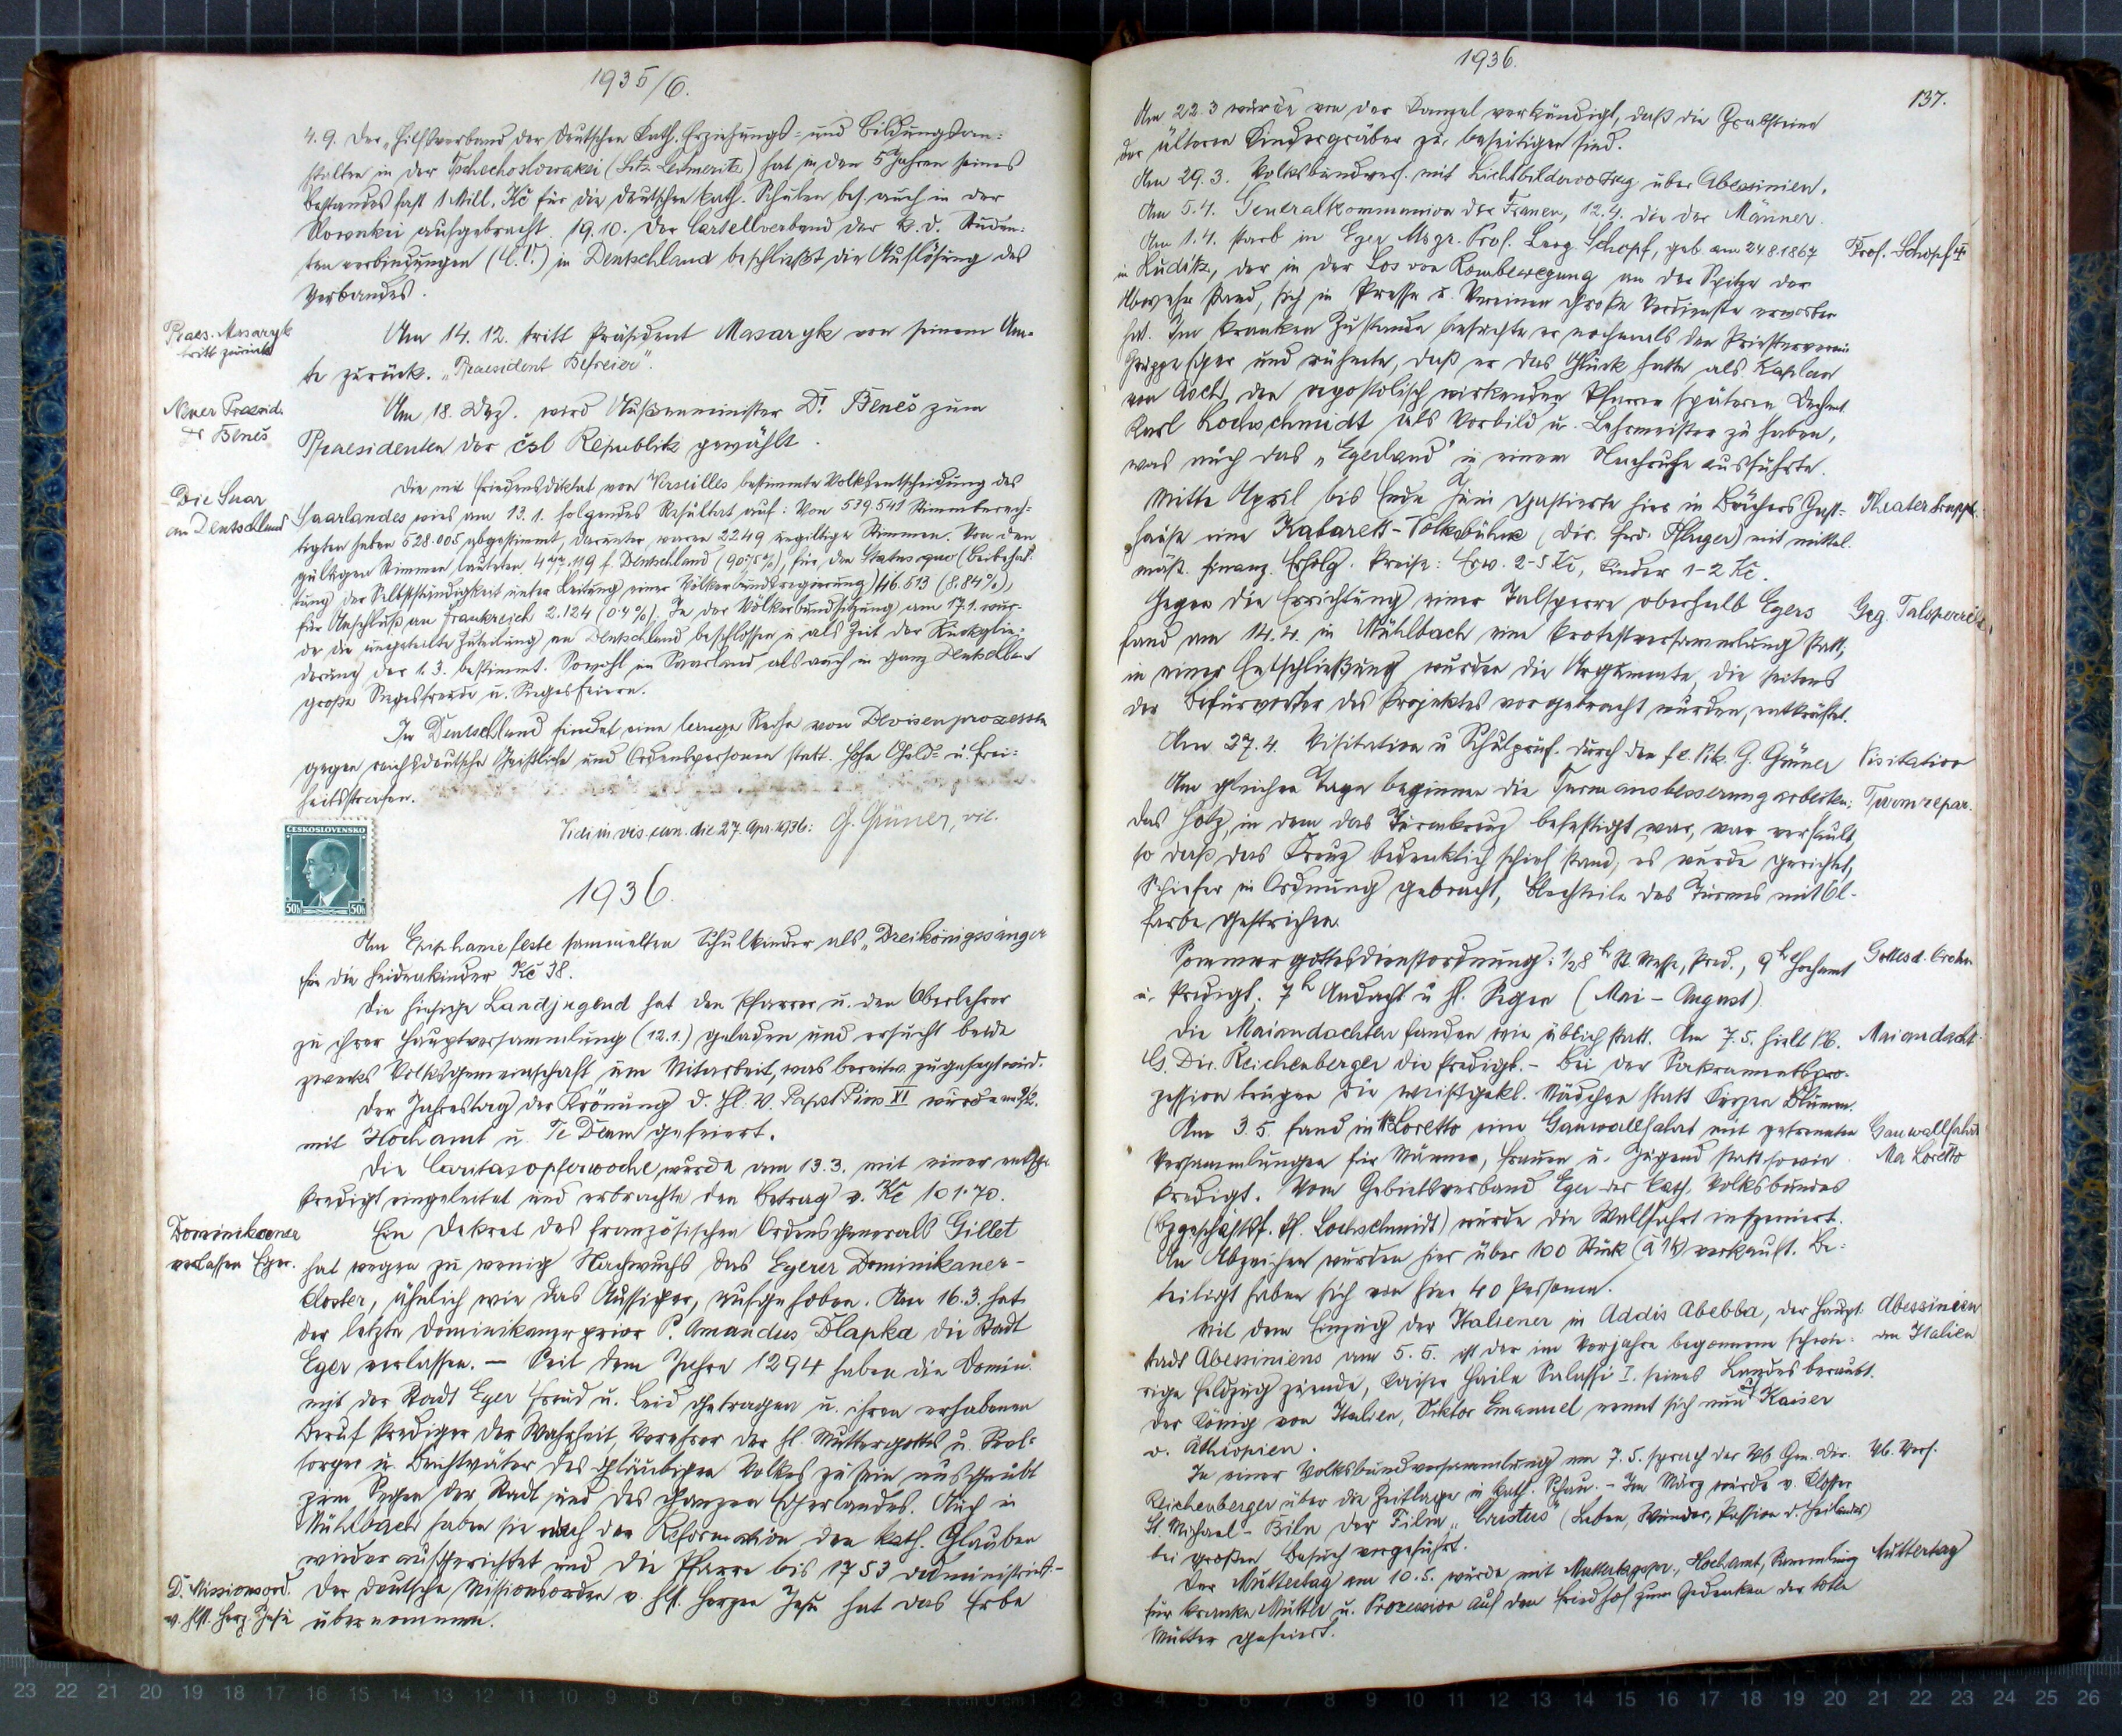 1935/6.
4.9. Der "Hilfsverband der deutschen kath. Erziehungs- und Bildungsan-
stalten in der Tschechoslowakei (Sitz Leitmeritz) hat in den 5 Jahren seines
Bestandes fast 1 Mill. Kč für die deutschen kath. Schulen bes. auch in der
Slowakei aufgebracht. 19.10. Der Cartellverband der k. d. Studen-
tenverbindungen (C.V.) in Deutschland beschließt die Auflösung des
Verbandes.
Praes. Masaryk
tritt zurück
Am 14.12. tritt Präsident Masaryk von seinem Am-
te zurück. "Praesident Befreier".
Neuer Praesid.
Dr Beneš
Am 18. Dez. wird Außenminister Dr. Beneš zum
Praesidenten der čsl Republik gewählt.
Die Saar
an Deutschland
Die mit Friedensdiktat von Versailles bestimmte Volksentscheidung des
Saarlandes wies am 13.1. folgendes Resultat auf: Von 539.541 Stimmberech-
tigten haben 528.005 abgestimmt, darunter waren 2249 ungiltige Stimmen. Von den
gültigen Stimmen lauteten 477.119 f. Deutschland (90.75%), für den Status quo (Beibehal-
tung der Selbstständigkeit unter Leitung einer Völkerbundsregierung) 46.513 (8.84%),
für Anschluß an Frankreich 2.124 (0.4%). In der Völkerbundsitzung am 17.1. wur-
de die ungeteilte Zuteilung an Deutschland beschlossen u. als Zeit der Rückglie-
derung der 1.3. bestimmt. Sowohl im Saarland als auch in ganz Deutschland
große Siegesfreude u. Siegesfeiern.
In Deutschland findet eine lange Reihe von Devisenprozessen
gegen reichsdeutsche Geistliche und Ordenspersonen statt. Hohe Geld- u. Frei-
heitsstrafen.
Vidi in vis. can. die 27. Apr. 1936: G. Grüner, vic.
ČESKOSLOVENSKO
50h 50h
1936.
Am Epiphaniefeste sammelten Schulkinder als "Dreikönigssänger
für die Heidenkinder Kč 38.
Die hiesige Landjugend hat den Pfarrer u. den Oberlehrer
zu ihrer Hauptversammlung (12.1.) geladen und ersucht beide
zwecks Volksgemeinschaft um Mitarbeit, was bereitw. zugesagt wird.
Der Jahrestag der Krönung d. Hl. V. Papst Pius XI wurde am 9/2.
mit Hochamt u. Te Deum gefeiert.
Die Caritasopferwoche wurde am 13.3. mit einer entspr.
Predigt eingeleitet und erbrachte den Betrag v. Kč 101.70.
Dominikaner
verlassen Eger.
Ein Dekret des französischen Ordensgenerals Gillet
hat wegen zu wenig Nachwuchs das Egerer Dominikaner-
kloster, ähnlich wie das Aussiger, aufgehoben. Am 16.3. hat
der letzte Dominikanerprior P. Amandus Dlapka die Stadt
Eger verlassen. — Seit dem Jahre 1294 haben die Domin.
mit der Stadt Eger Freud u. Leid getragen u. ihren erhabenen
Beruf Prediger der Wahrheit, Verehrer der hl. Muttergottes u. Seel-
sorger u. Beichtväter des gläubigen Volkes zu sein ausgeübt
zum Segen der Stadt und des ganzen Egerlandes. Auch in
Mühlbach haben sie nach der Reformation den kath. Glauben
wieder aufgerichtet und die Pfarre bis 1753 administriert.-
D. Missionsord.
v. hlst. Herz Jesu
Der deutsche Missionsorden v. hlst. Herzen Jesu hat das Erbe
übernommen.
1936.
137.
Am 22.3 wurde von der Kanzel verkündigt, daß die Grabsteine
der älteren Kindergräber zu beseitigen sind.
Am 29.3. Volksbundvers. mit Lichtbildervortrag über Abessinien.
Am 5.4. Generalkommunion der Frauen, 12.4. die der Männer.
Am 1.4. starb in Eger Msgr. Prof. Georg Schopf, geb. am 24.8.1867
Prof. Schopf †
in Luditz, der in der Los von Rombewegung an der Spitze der
Abwehr stand, sich in Presse u. Vereinen große Verdienste erworben
hat. Im kranken Zustande besuchte er nochmals den Priesterverein
Gruppe Eger und rühmte, daß er das Glück hatte als Kaplan
von Asch, den apostolisch wirkenden Pfarrer späteren Dechant
Karl Lochschmidt als Vorbild u. Lehrmeister zu haben,
was auch das "Egerland" in einem Nachrufe ausführte.
Mitte April bis Ende Juni gastierte hier in Böchers Gast-
Theatertruppe.
hause eine Kabarett-Volksbühne (Dir. Ferd. Pfluger) mit mittel-
mäß. finanz. Erfolg. Preise: Erw. 2-5 Kč, Kinder 1-2 Kč.
Gegen die Errichtung einer Talsperre oberhalb Egers
Geg. Talsperre
fand am 14.4. in Mühlbach eine Protestversammlung statt;
in einer Entschließung wurden die Argumente, die seitens
der Befürworter des Projektes vorgebracht wurden, entkräftet.
Am 27.4. Visitation u Schulprüf. durch den fe. Vik. G. Grüner
Visitation
Am gleichen Tage beginnen die Turmausbesserungsarbeiten;
Turmrepar.
das Holz, in dem das Turmkreuz befestigt war, war verfault,
so daß das Kreuz bedenklich schief stand; es wurde gerichtet,
Schiefer in Ordnung gebracht, Blechteile des Turmes mit Öl-
farbe gestrichen.
Sommergottesdienstordnung: 1/2 8h St. Messe, Pred., 9h Hochamt
Gottesd. Ordn.
u. Predigt. 7h Andacht u hl. Segen (Mai-August).
Die Maiandachten fanden wie üblich statt. Am 7.5. hielt Vb.
Maiandacht
G. Dir. Reichenberger die Predigt. - Bei der Sakramentspro-
zession trugen die weißgekl. Mädchen statt Kerzen Blumen.
Am 3.5. fand in Ma Loretto eine Gauwallfahrt mit getrennten
Gauwallfahrt
Versammlungen für Männer, Frauen u. Jugend statt sowie
Ma Loretto
Predigt. Vom Gebietsverband Eger des kath. Volksbundes
(Bzgeschäftsf. Lochschmidt) wurde die Wallfahrt inszeniert.
An Abzeichen wurden hier über 100 Stück (à 1 Kč) verkauft. Be-
teiligt haben sich von hier 40 Personen.
Mit dem Einzug der Italiener in Addis Abebba, der Haupt-
Abessinien
an Italien
stadt Abessiniens am 5.5. ist der im Vorjahre begonnene schwie-
rige Feldzug zuende, Kaiser Haile Salassi I. seines Landes beraubt.
Der König von Italien, Viktor Emanuel nennt sich nun auch Kaiser
v. Äthiopien.
In einer Volksbundversammlung am 7.5. sprach der Vb Gen. Dir.
Vb. Vers.
Reichenberger über die Zeitlage in kath. Schau. - Im März wurde v. Kloster
St. Michael-Biln der Film "Cristus" (Leben, Wunder, Passion d. Heilandes)
bei großem Besuch vorgeführt.
Der Muttertag am 10.5. wurde mit Muttertagspr., Hochamt, Sammlung
Muttertag
für kranke Mütter u. Prozession auf den Friedhof zum Gedenken der tote
Mütter gefeiert.